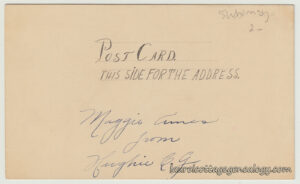 2-
POST CARD.
THIS SIDE FOR THE ADDRESS.
Maggie Ames
from
Hughie
laurelcottagegenealogy.com